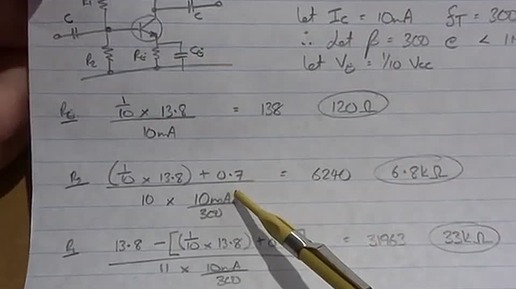 R1
C
C
R2
RE
CE
let Ic = 10mA fT = 300
∴ let β = 300 @ < 1M
let VE = 1/10 Vcc
RE 1/10 × 13.8 / 10mA = 138 120Ω
R2 (1/10 × 13.8) + 0.7 / 10 × 10mA/300 = 6240 6.8kΩ
R1 13.8 − [(1/10 × 13.8) + 0 ] / 11 × 10mA/300 = 31963 33kΩ